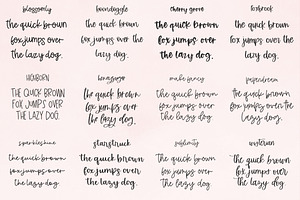 blossomly
the quick brown
fox jumps over
the lazy dog.
boondoggle
the quick brown
fox jumps over the
lazy dog.
cherry grove
the quick brown
fox jumps over
the lazy dog.
foxbrook
the quick brown
fox jumps over the
lazy dog.
HIGHBORN
THE QUICK BROWN
FOX JUMPS OVER
THE LAZY DOG.
the quick brown
fox jumps over
the lazy dog.
the quick brown
fox jumps over
the lazy dog.
paperdream
the quick brown
fox jumps over the
lazy dog.
sparkleshine
the quick brown
fox jumps over
the lazy dog.
starstruck
the quick brown
fox jumps over
the lazy dog.
the quick brown
fox jumps over
the lazy dog.
the quick brown
fox jumps over
the lazy dog.